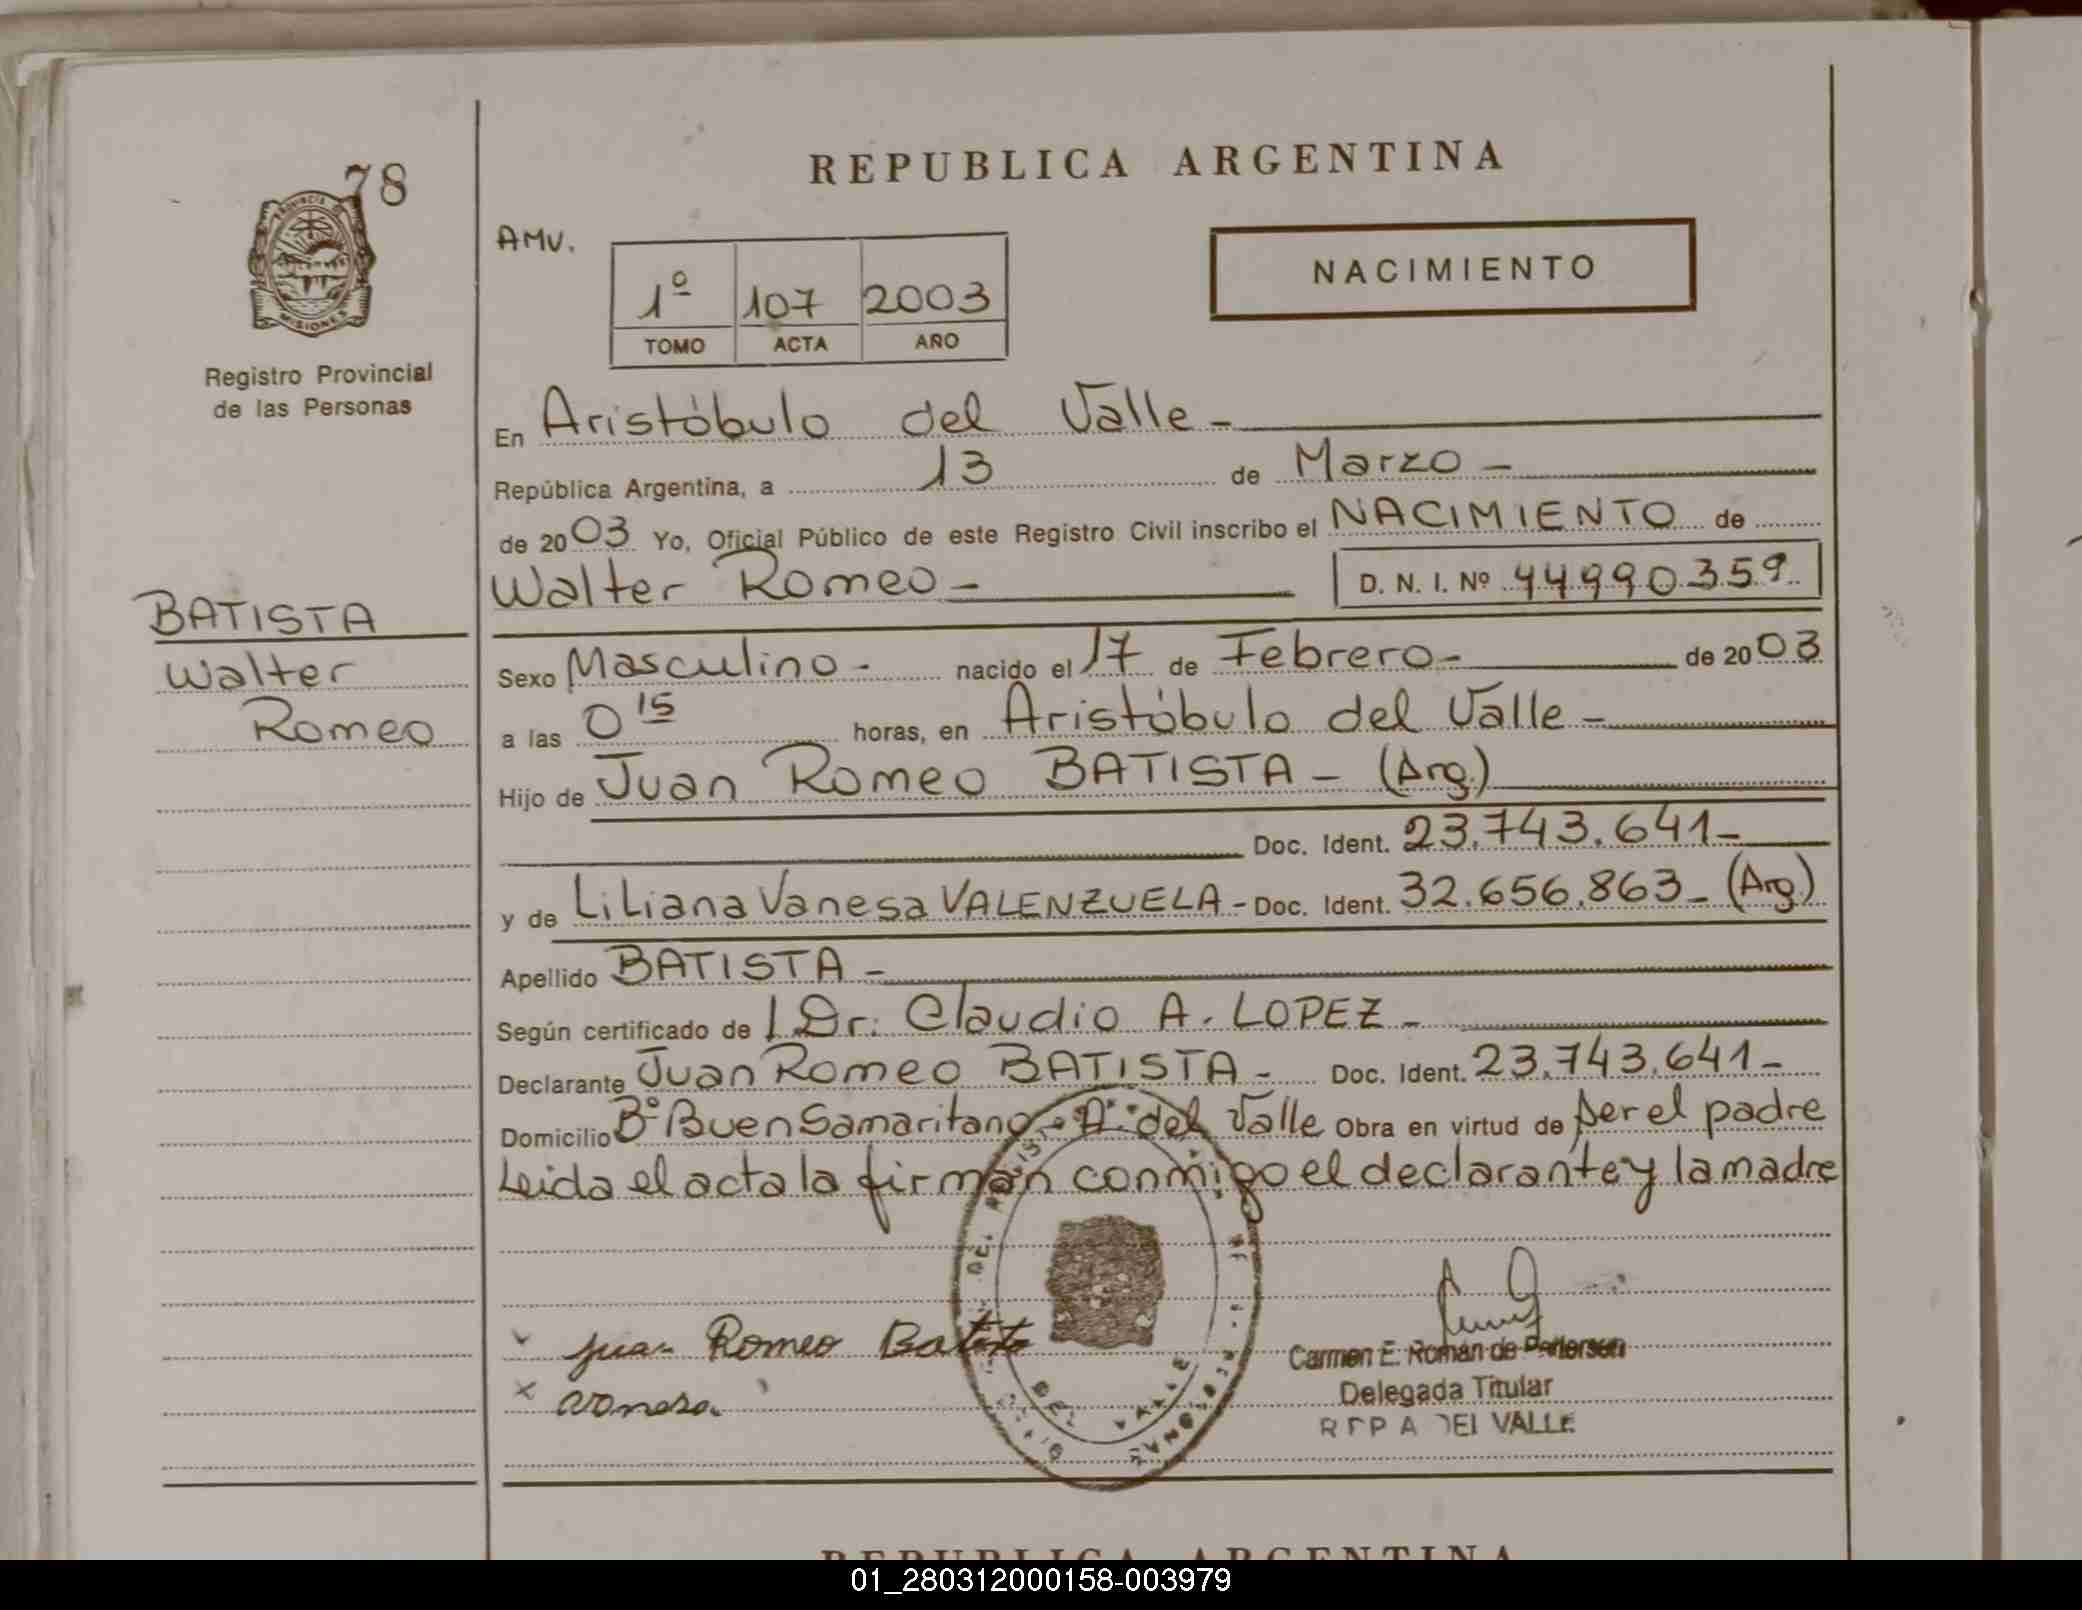 78
PROVINCIA DE
MISIONES
Registro Provincial
de las Personas
BATISTA
Walter
Romeo
REPUBLICA ARGENTINA
AMV.
NACIMIENTO
1º 107 2003
TOMO ACTA AÑO
En Aristóbulo del Valle -
República Argentina, a 13 de Marzo -
de 2003 Yo, Oficial Público de este Registro Civil inscribo el NACIMIENTO de
Walter Romeo - D. N. I. Nº 44990359
Sexo Masculino - nacido el 17 de Febrero - de 2003
a las 0 15 horas, en Aristóbulo del Valle -
Hijo de Juan Romeo BATISTA - (Arg.)
Doc. Ident. 23.743.641-
y de Liliana Vanesa VALENZUELA - Doc. Ident. 32.656.863- (Arg.)
Apellido BATISTA -
Según certificado de l Dr. Claudio A. LOPEZ -
Declarante Juan Romeo BATISTA - Doc. Ident. 23.743.641-
Domicilio Bº Buen Samaritano - A. del Valle Obra en virtud de ser el padre
Leida el acta la firman conmigo el declarante y la madre
Juan Romeo Batista
vanesa
DEL VALLE
Carmen E. Román de Pedersen
Delegada Titular
VALLE
REPUBLICA ARGENTINA
01_280312000158-003979